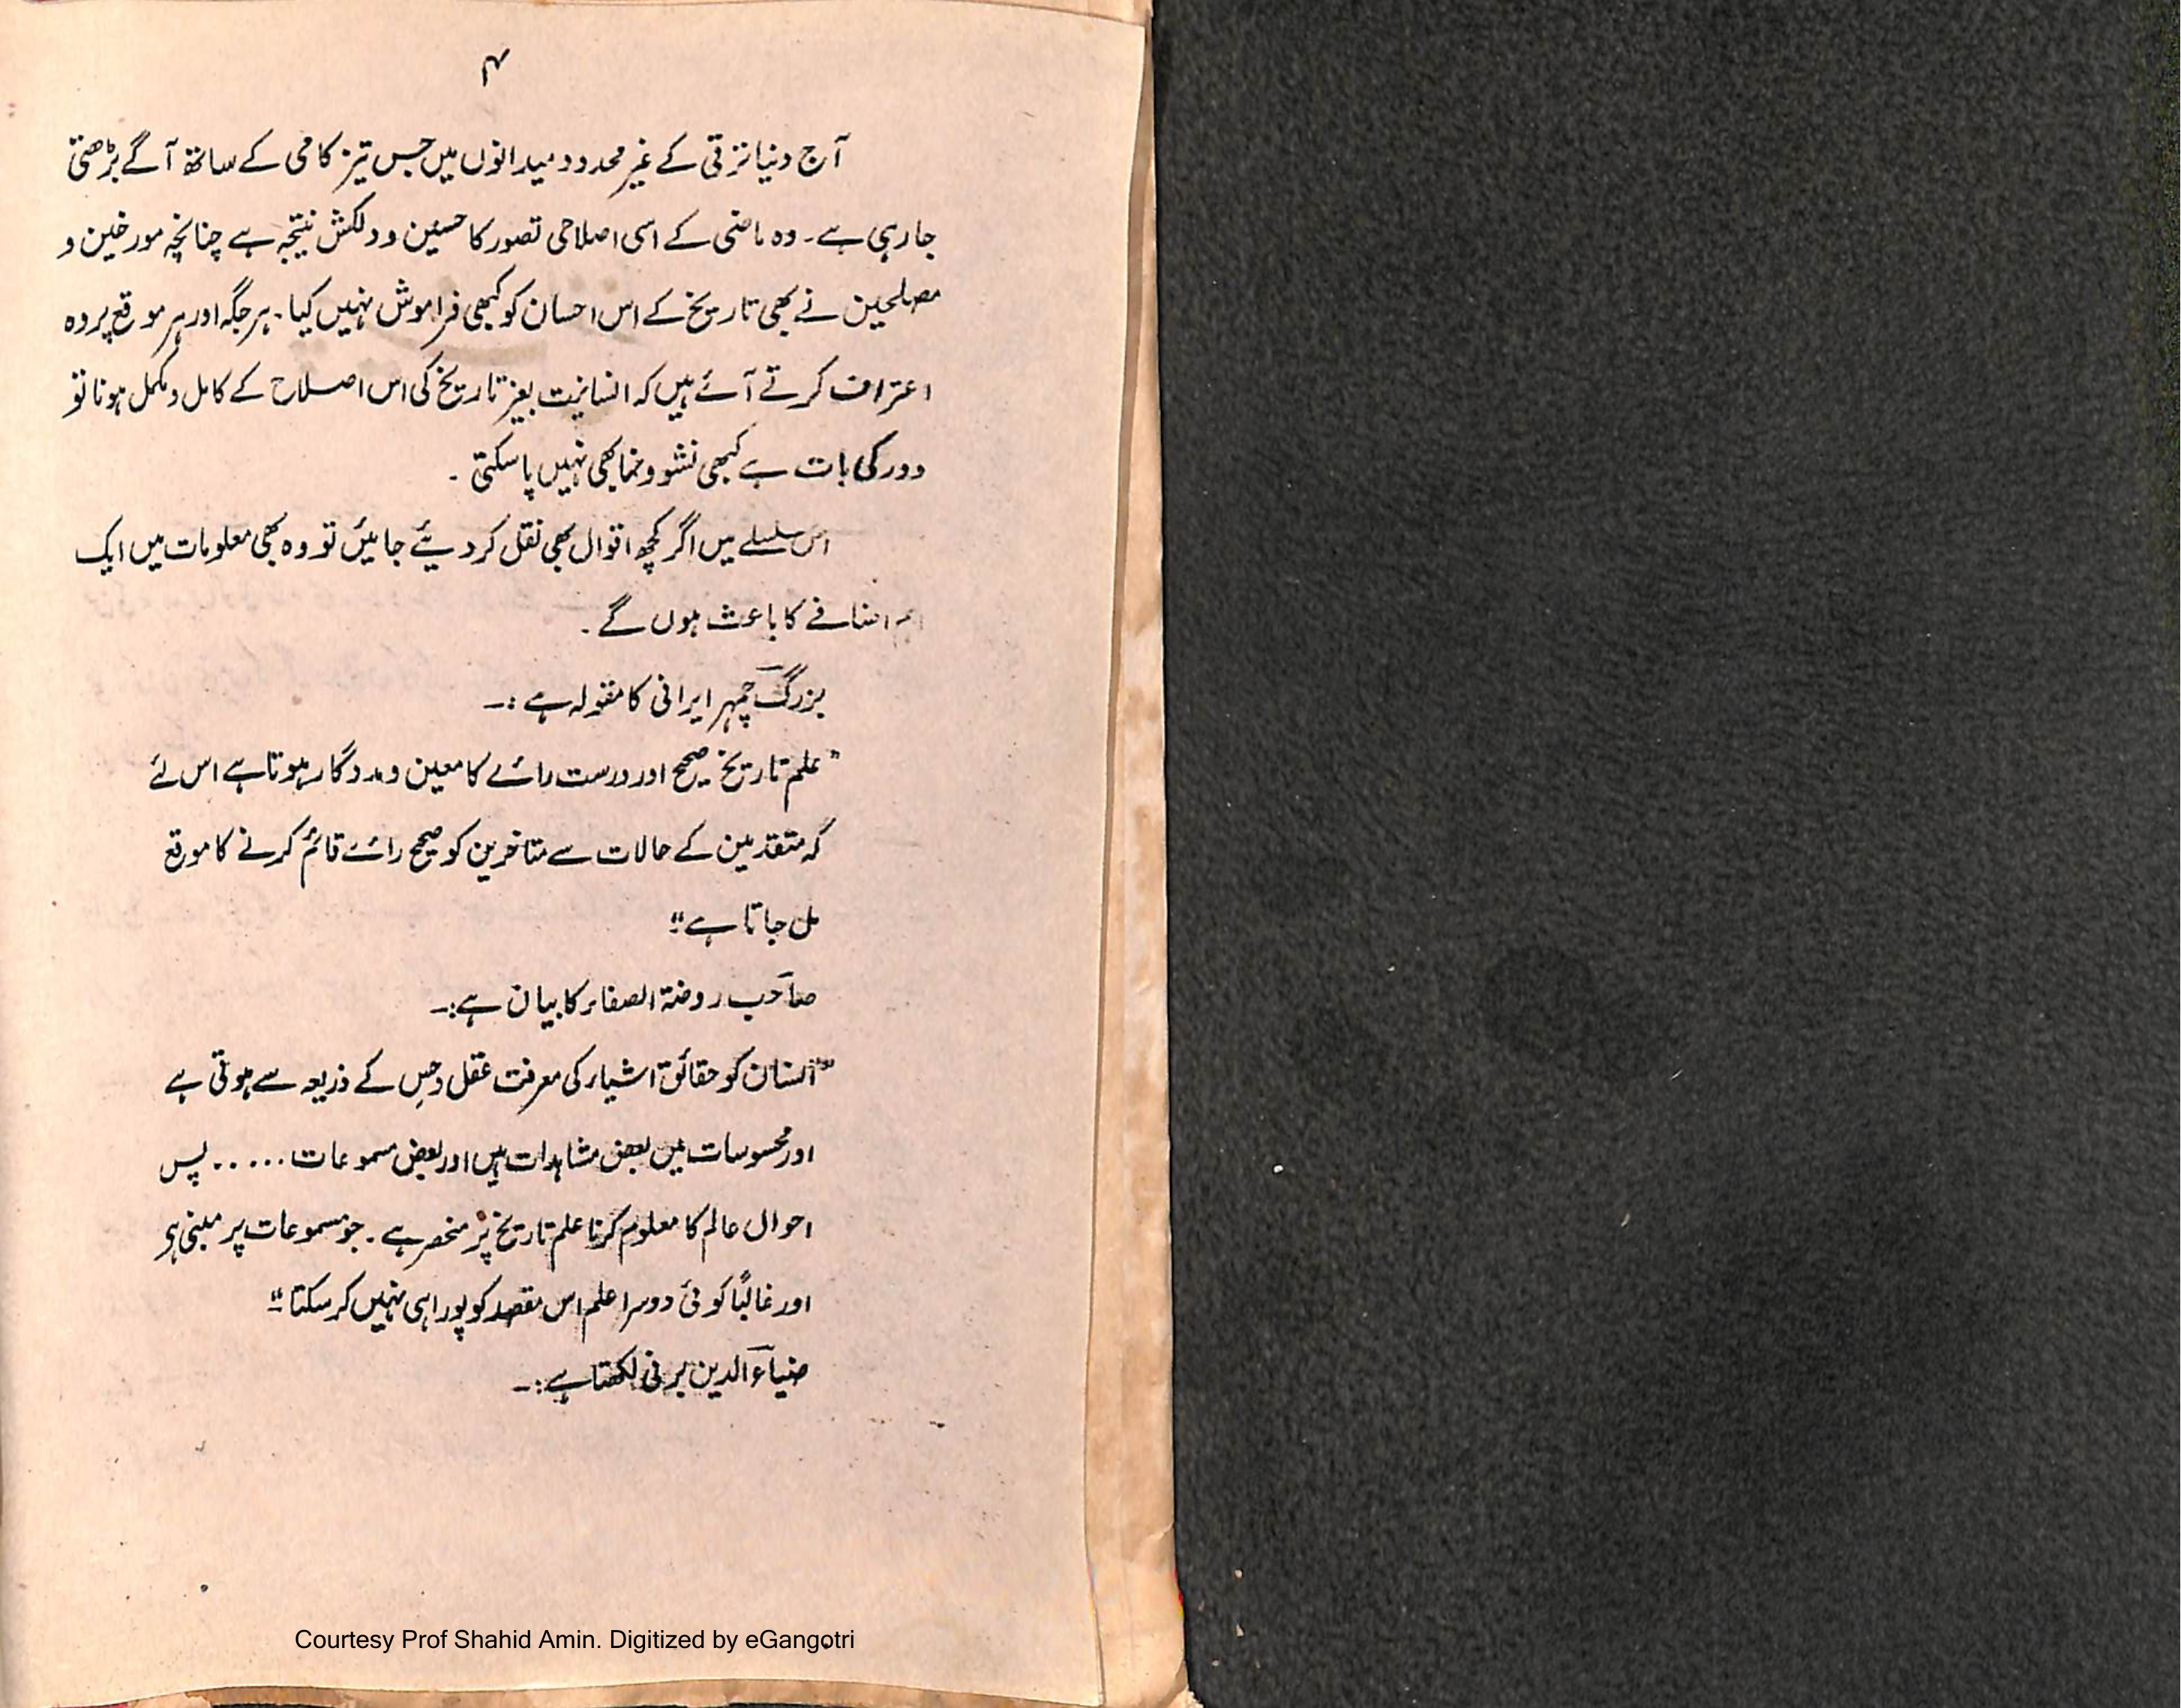 ۴
آج دنیا ترقی کے غیر محدود میدانوں میں جس تیز گامی کے ساتھ آگے بڑھتی
جا رہی ہے۔ وہ ماضی کے اسی اصلاحی تصور کا حسین و دلکش نتیجہ ہے چنانچہ مورخین و
مصلحین نے بھی تاریخ کے اس احسان کو کبھی فراموش نہیں کیا۔ ہر جگہ اور ہر موقع پر وہ
اعتراف کرتے آئے ہیں کہ انسانیت بغیر تاریخ کی اس اصلاح کے کامل و مکمل ہونا تو
دور کی بات ہے کبھی نشو و نما بھی نہیں پا سکتی ۔
اس سلسلے میں اگر کچھ اقوال بھی نقل کر دیئے جائیں تو وہ بھی معلومات میں ایک
اضافے کا باعث ہوں گے ۔
بزرگ چمہر ایرانی کا مقولہ ہے :۔
"علم تاریخ صحیح اور درست رائے کا معین و مددگار ہوتا ہے اس لئے
کہ متقدمین کے حالات سے متاخرین کو صحیح رائے قائم کرنے کا موقع
مل جاتا ہے"
صاحب روضۃ الصفاء کا بیان ہے:۔
"انسان کو حقائق اشیاء کی معرفت عقل و حس کے ذریعہ سے ہوتی ہے
اور محسوسات میں بعض مشاہدات ہیں اور بعض مسموعات ..... پس
احوال عالم کا معلوم کرنا علم تاریخ پر منحصر ہے ۔ جو مسموعات پر مبنی ہی
اور غالباً کوئی دوسرا علم اس مقصد کو پورا ہی نہیں کر سکتا"
ضیاء الدین برنی لکھتا ہے :۔
Courtesy Prof Shahid Amin. Digitized by eGangotri